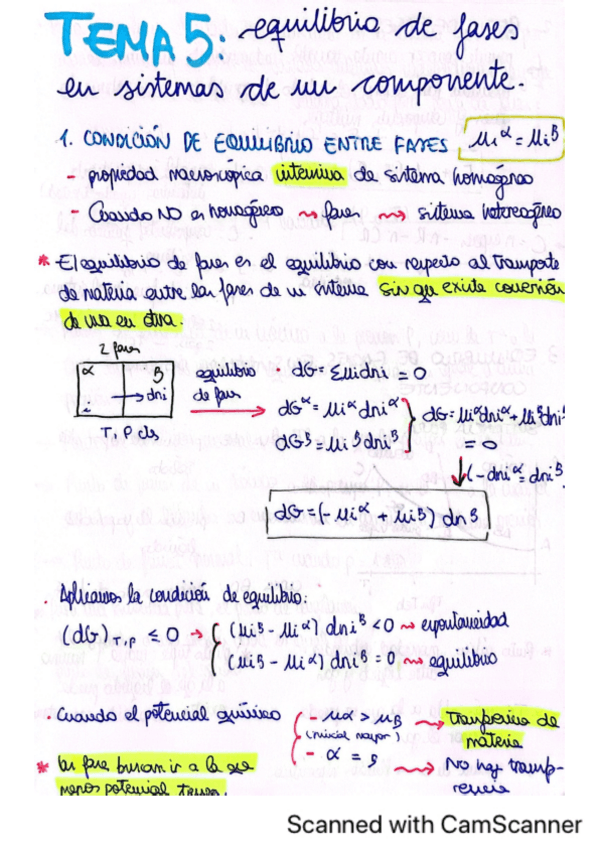 TEMA 5: equilibrio de fases
en sistemas de un componente.
1. CONDICIÓN DE EQUILIBRIO ENTRE FASES μi^α = μi^β
- propiedad macroscópica intensiva de sistema homogéneo
- Cuando NO es homogéneo ⇝ fases ⇝ sistema heterogéneo
* El equilibrio de fases es el equilibrio con respecto al transporte
de materia entre las fases de un sistema sin que exista conversión
de una en otra.
2 fases
α β
i → dni
T, P cts
equilibrio
de fases
· dG = Σμidni = 0
dG^α = μi^α dni^α
dG^β = μi^β dni^β
dG = μi^α dni^α + μi^β dni^β
= 0
↓ (-dni^α = dni^β
dG = (-μi^α + μi^β) dn^β
· Aplicamos la condición de equilibrio:
(dG)T,P ≤ 0 → { (μi^β - μi^α) dni^β < 0 ⇝ espontaneidad
(μi^β - μi^α) dni^β = 0 ⇝ equilibrio
· Cuando el potencial químico { - μα > μβ ⇝ Transferencia de
materia
(inicial mayor)
- α = β ⇝ No hay transfe-
rencia
* las fases buscan ir a la que
menos potencial tenga.
Scanned with CamScanner